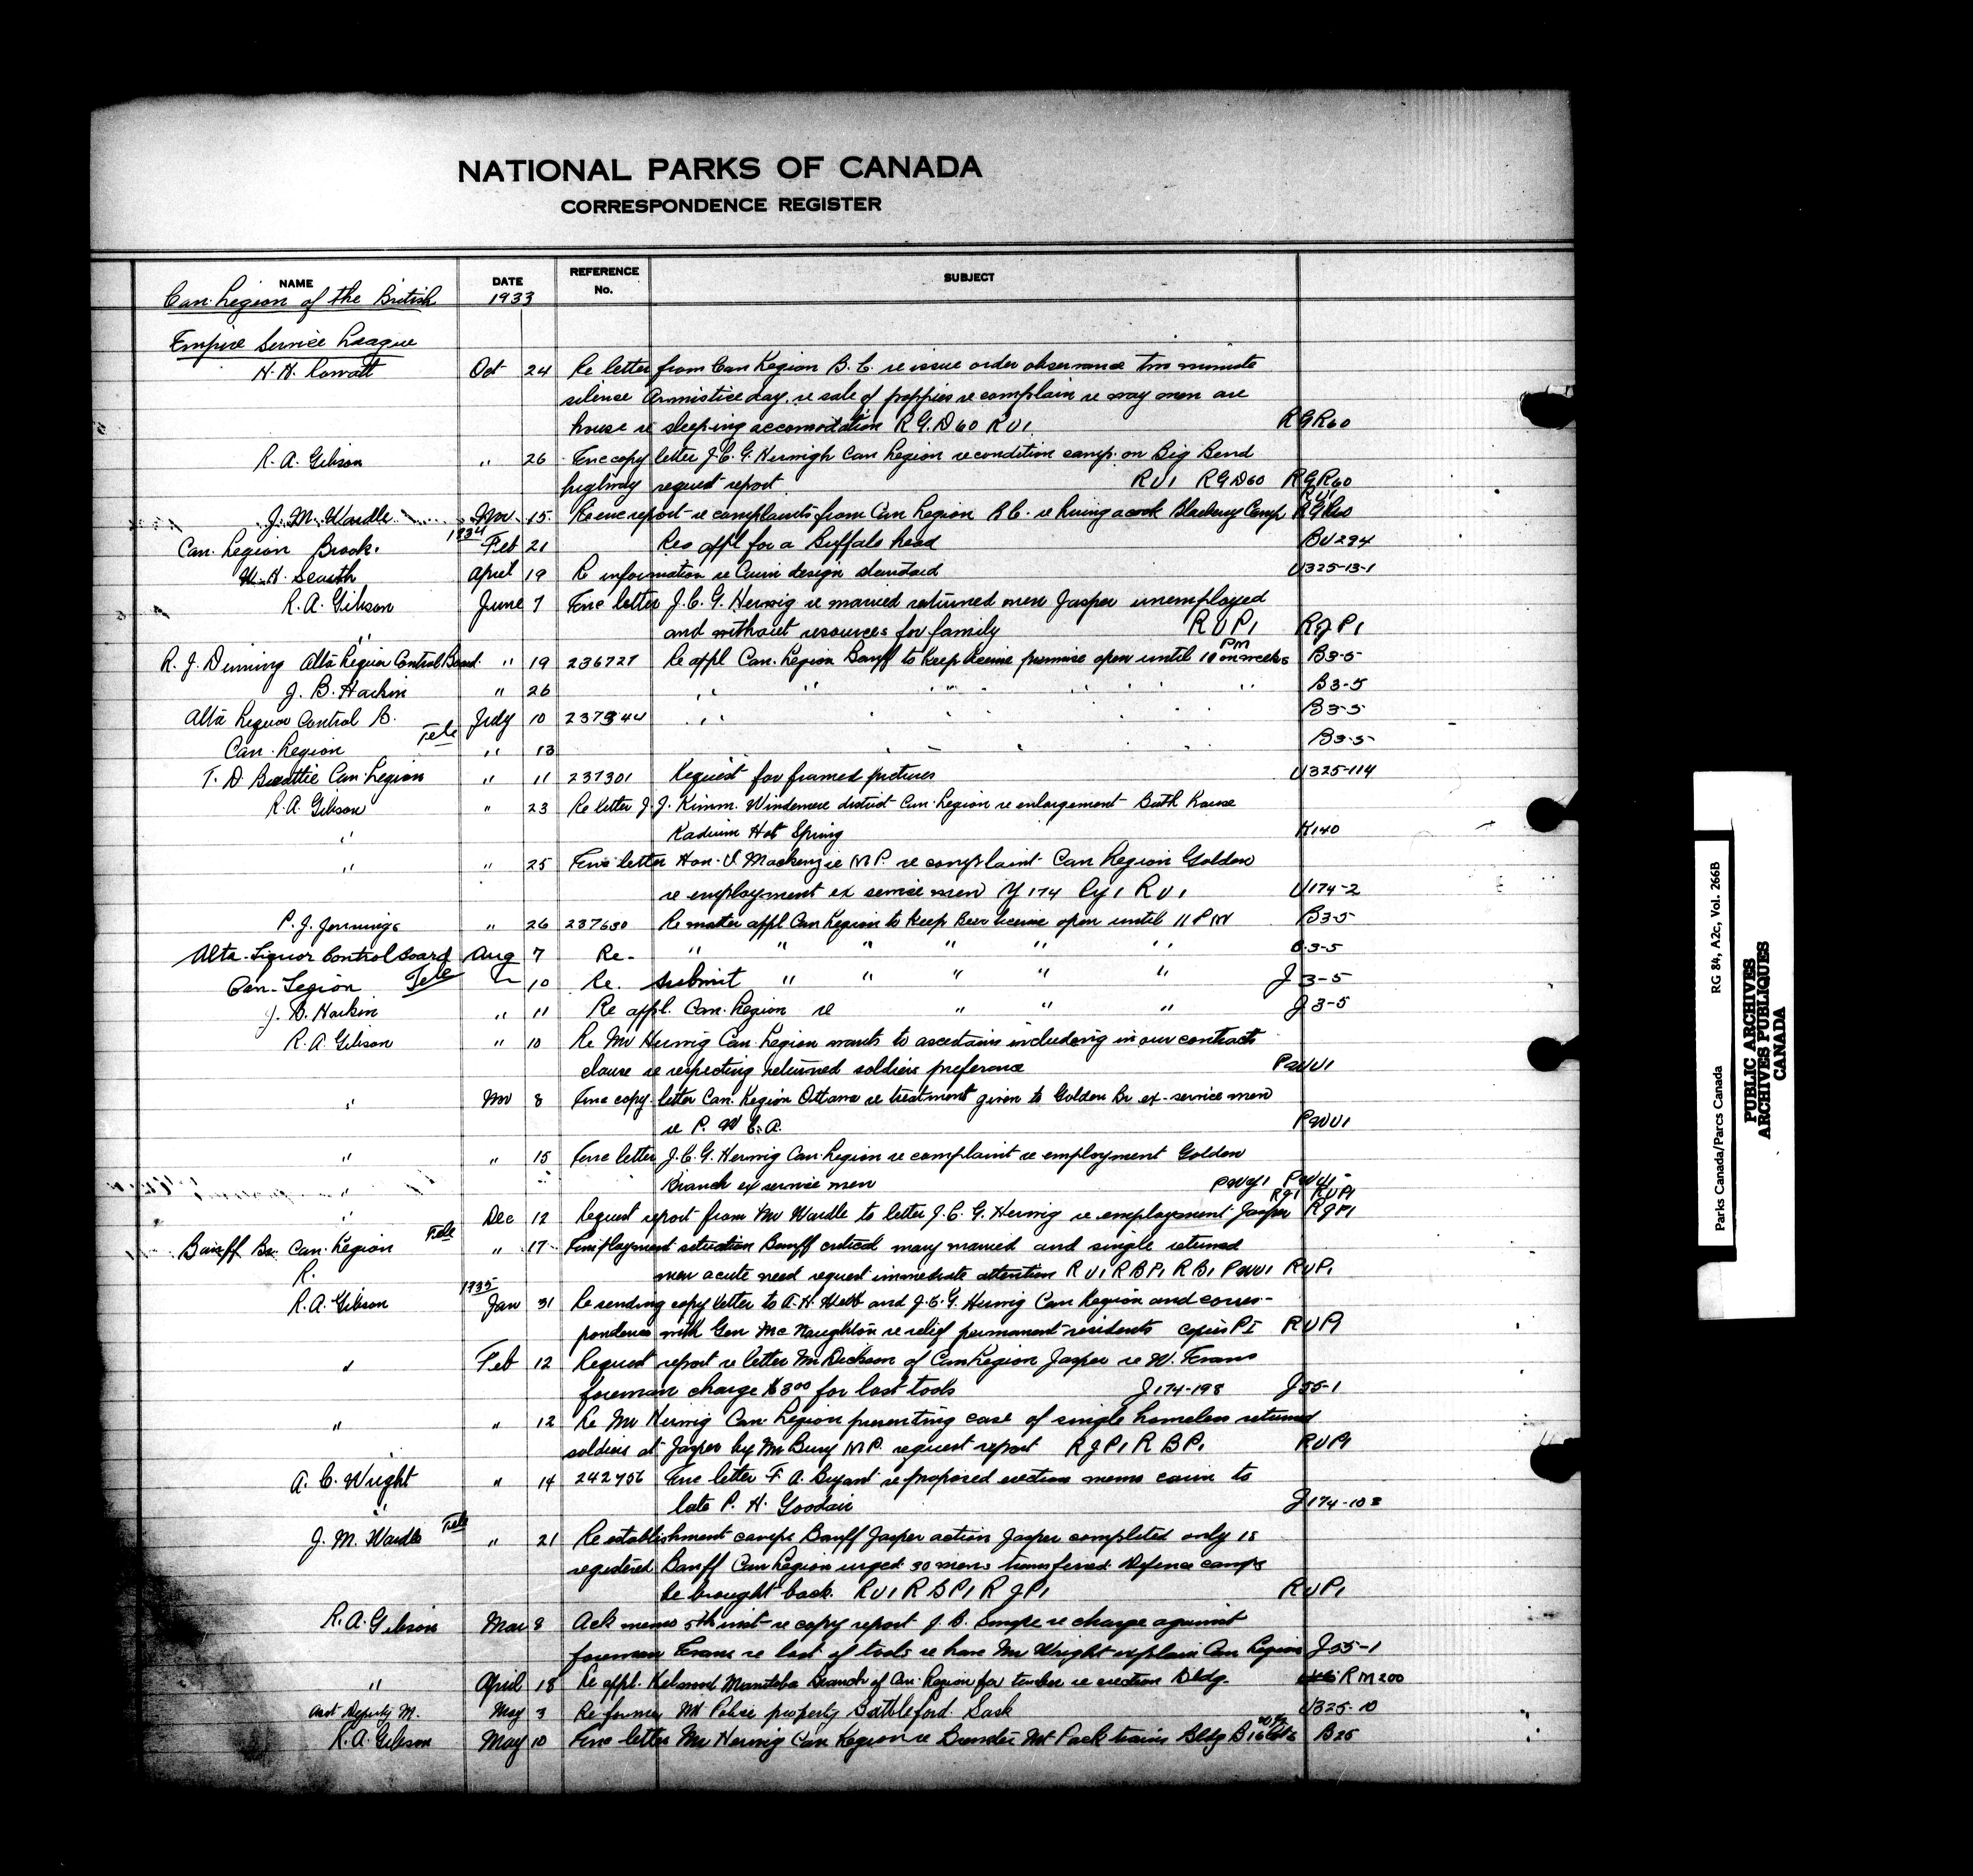 NATIONAL PARKS OF CANADA
CORRESPONDENCE REGISTER
NAME DATE REFERENCE No. SUBJECT
Can. Legion of the British 1933
Empire Service League
H. H. Rowatt Oct 24 Re letter from Can Legion B. C. re issue order observance two minute
silence Armistice day. re sale of poppies re complain re way men are
house re sleeping accomodation R G. D60 R U1 RGR60
R. A. Gibson " 26 Enc copy letter J. C. G. Herwigh Can Legion re condition camp on Big Bend
highway request report RU1 RGD60 RGR60
RU1
J. M. Wardle Nov 15 Re enc report re complaints from Can Legion B C. re hiring a cook Blaeberry Camp RGR60
Can. Legion Brook. 1934 Feb 21 Res appl for a Buffalo head BU294
W. H. Scarth April 19 R information re Cairn design standard U325-13-1
R. A. Gibson June 7 Enc letter J. C. G. Herwig re married returned men Jasper unemployed
" and without resources for family R U P1 RJP1
R. J. Dinning Alta Liquor Control Board " 19 236727 Re appl Can. Legion Banff to keep license premise open until 10 PM on weeks B3-5
J. B. Harkin " 26 " " " " " B3-5
Alta Liquor Control B. July 10 237344 " " " B3-5
Can. Legion Tele " 13 " " " B3-5
T. D. Beattie Can. Legion " 11 237301 Request for framed pictures U325-114
R. A. Gibson " 23 Re letter J. J. Kimm. Windemere district Can. Legion re enlargement Bath house
" Radium Hot Spring K140
" " 25 Enc letter Hon. I. Mackenzie M P. re complaint Can Legion Golden
re employment ex service men Y174 Cy1 R U1 U174-2
P. J. Jennings " 26 237630 Re matter appl Can Legion to keep Beer license open until 11 P M B3-5
Alta. Liquor Control Board Aug 7 Re- " " " " " " B.3-5
Can. Legion Tele " 10 Re. submit " " " " " J3-5
J. B. Harkin " 11 Re appl. Can. Legion re " " " J3-5
R. A. Gibson " 10 Re Mr Herwig Can. Legion wants to ascertain including in our contracts
clause re respecting returned soldiers preference PWU1
" Nov 8 Enc copy letter Can. Legion Ottawa re treatment given to Golden Br ex-service men
re P. W C. A. PWU1
" " 15 Enc letter J. C. G. Herwig Can. Legion re complaint re employment Golden
" Branch ex service men PWY1 PWU1
RJ1 RUP1
" Dec 12 Request report from Mr Wardle to letter J. C. G. Herwig re employment Jasper RJP1
Banff Br. Can. Legion Tele " 17 Employment situation Banff critical many married and single returned
R. men acute need request immediate attention R U1 R B P1 R B1 PWU1 RUP1
R. A. Gibson 1935 Jan 31 Re sending copy letter to A. H. Webb and J. C. G. Herwig Can Legion and corres-
pondence with Gen McNaughton re relief permanent residents copies P I RUP1
" Feb 12 Request report re letter Mr Dickson of Can Legion Jasper re W. Evans
foreman charge $3.00 for lost tools J174-198 J55-1
" " 12 Re Mr Herwig Can. Legion presenting case of single homeless returned
soldiers at Jasper by Mr Bury M P. request report R J P1 R B P1 RUP1
A. C. Wright " 14 242756 Enc letter F. A. Bryant re proposed erection memo cairn to
" late P. H. Goodair J174-103
J. M. Wardle Tele " 21 Re establishment camps Banff Jasper action Jasper completed only 18
registered Banff Can Legion urged 30 mens transferred Defence camps
be brought back. RU1 R B P1 R J P1 RUP1
R. A. Gibson Mar 8 Ack memo 5th inst re copy report J. B. Snape re charge against
foreman Evans re lost of tools re have Mr Wright explain Can Legion J55-1
" April 18 Re appl. Kelwood Manitoba Branch of Can. Legion for timber re erection Bldg. RM200
Asst Deputy M. May 3 Re former Mt Police property Battleford Sask U325-10
R. A. Gibson May 10 Enc letter Mr Herwig Can Legion re Brewster Mt Pack trains Bldg B26
RG 84, A2c, Vol. 266B
Parks Canada/Parcs Canada
PUBLIC ARCHIVES
ARCHIVES PUBLIQUES
CANADA